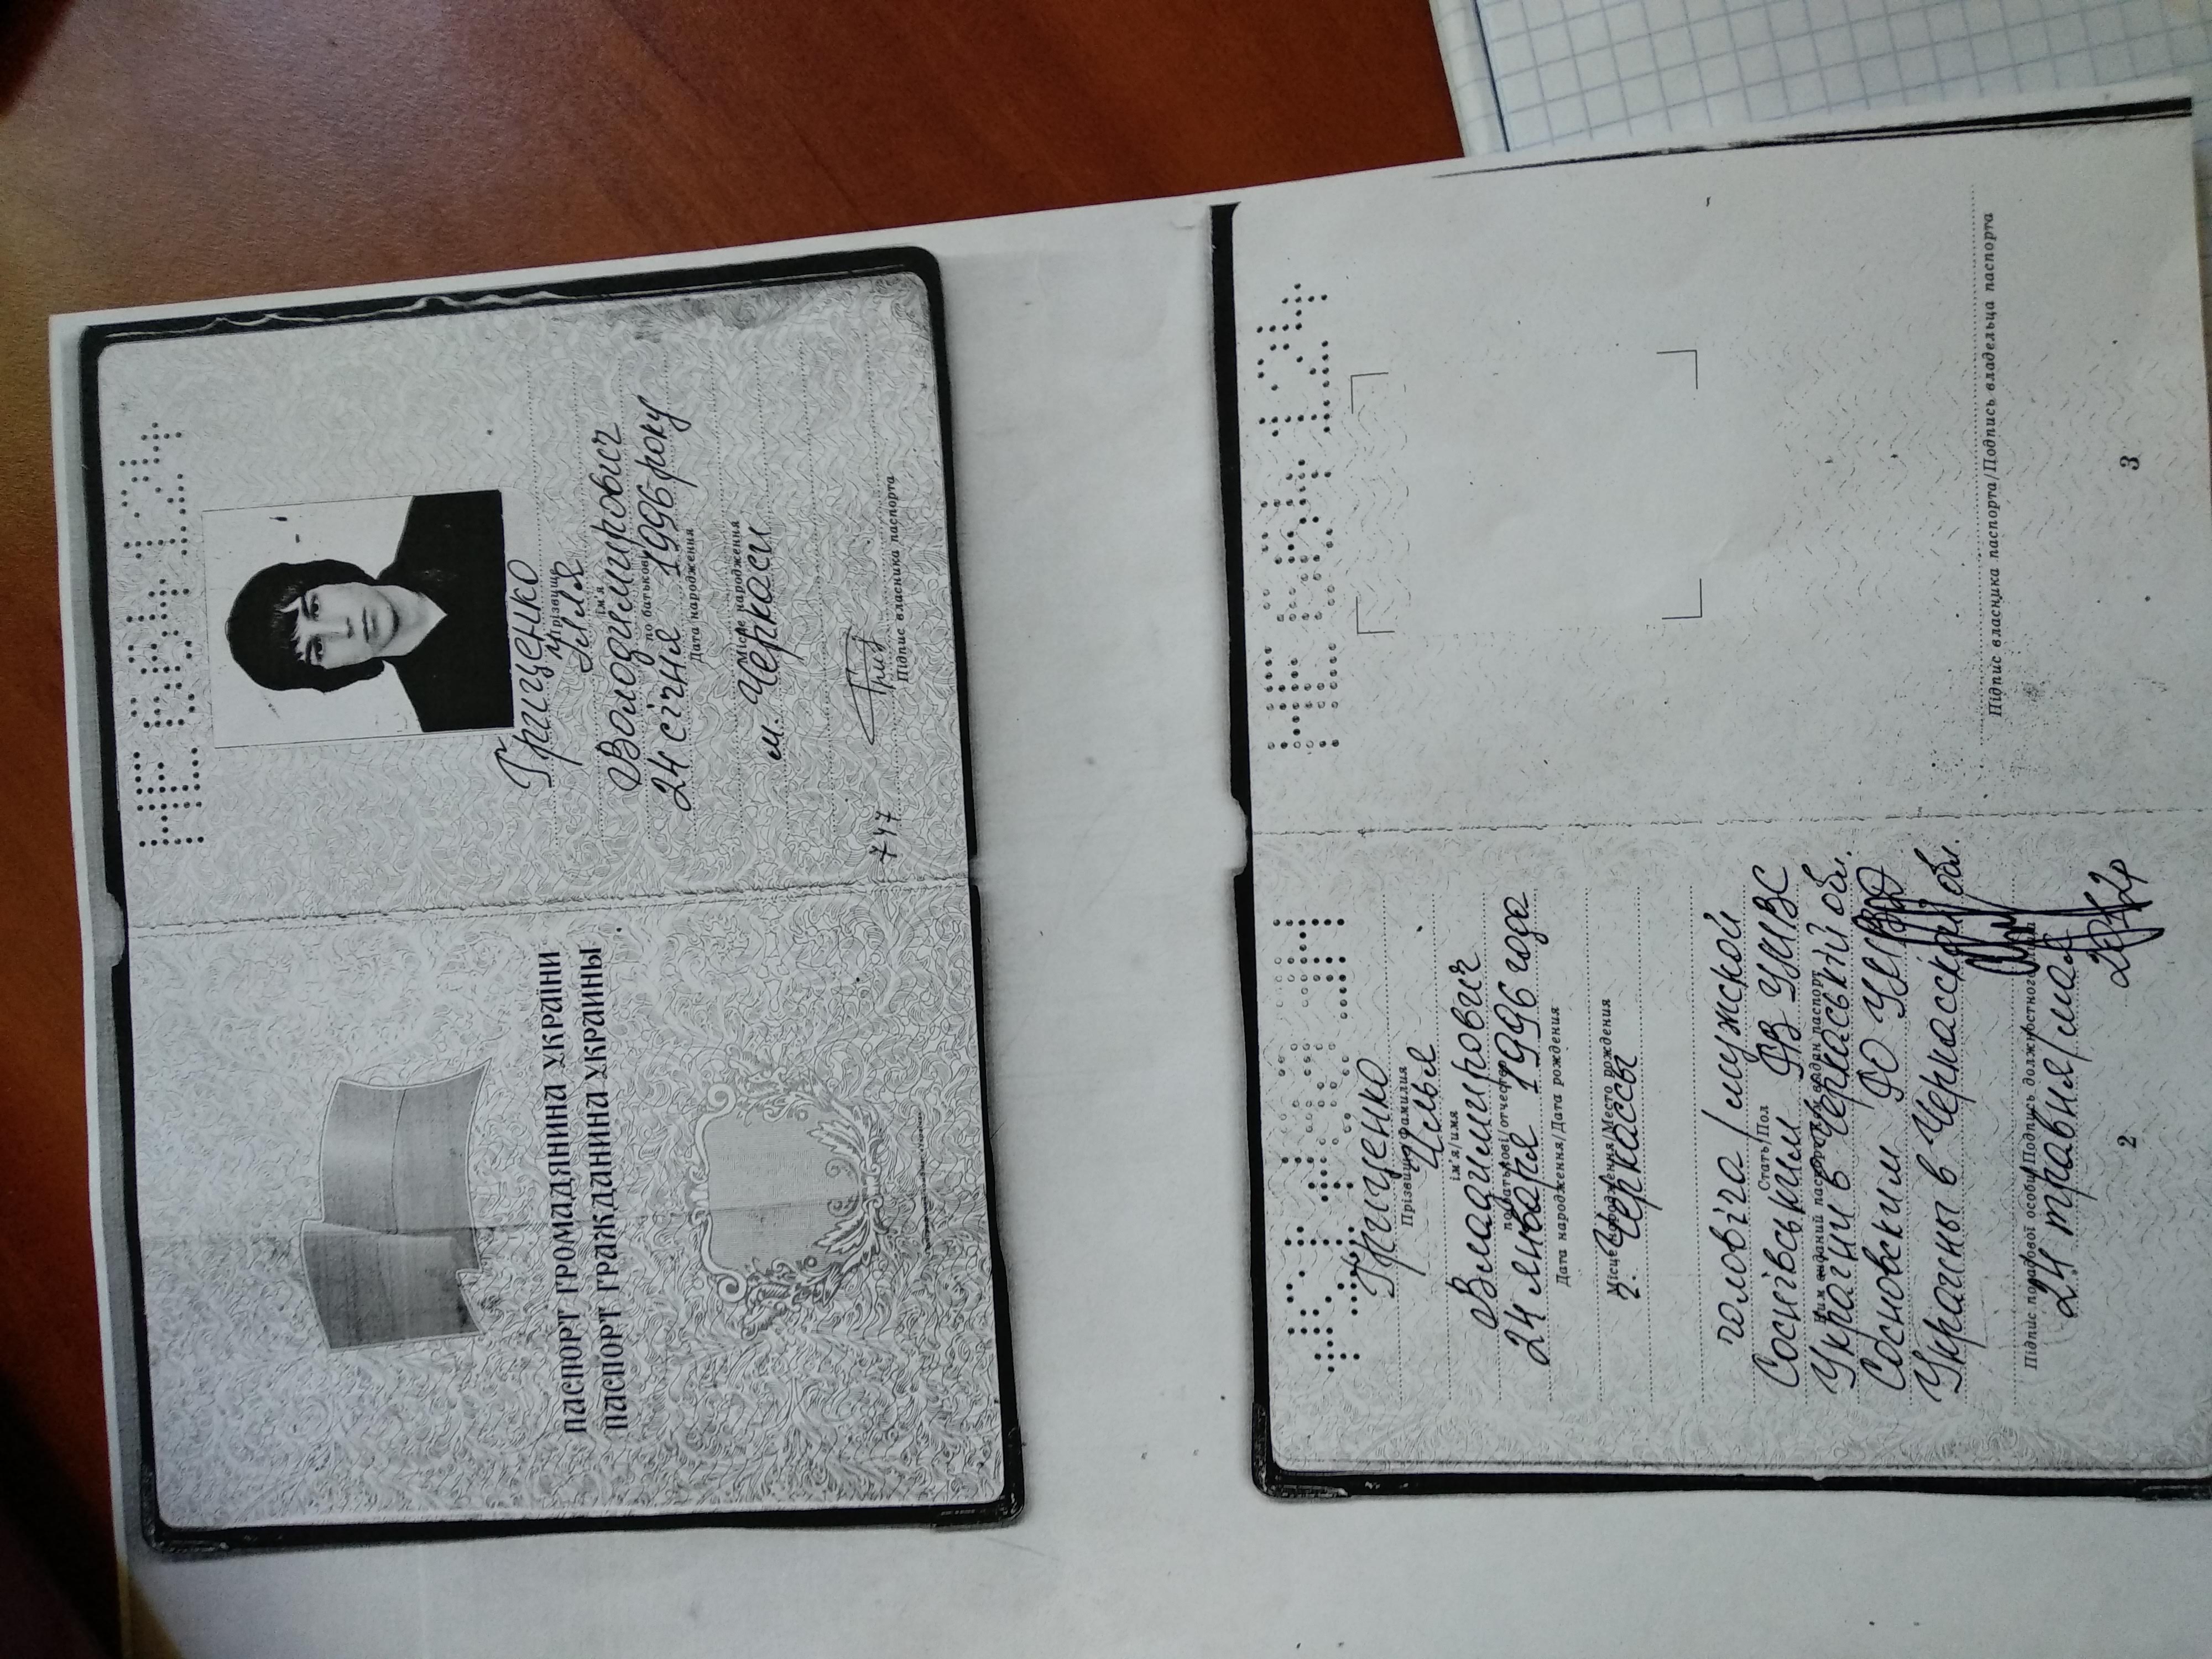 ПАСПОРТ ГРОМАДЯНИНА УКРАЇНИ
ПАСПОРТ ГРАЖДАНИНА УКРАИНЫ
НЕ 664124
Гриценко
Прізвище
Ілля
ім'я
Володимирович
по батькові
24 січня 1996 року
Дата народження
Місце народження
м. Черкаси
747
Гриз
Підпис власника паспорта
НЕ 664124
Гриценко
Прізвище/Фамилия
Илья
ім'я/имя
Владимирович
по батькові/отчество
24 января 1996 года
Дата народження/Дата рождения
Місце народження/Место рождения
г. Черкассы
чоловіча/мужской
Стать/Пол
Соснівським РВ УМВС
Ким виданий паспорт/Кем выдан паспорт
України в Черкаській обл.
Сосновским РО УМВД
Украины в Черкасской обл.
Підпис посадової особи/Подпись должностного лица
24 травня/мая
2012р
2
НЕ 664124
Підпис власника паспорта/Подпись владельца паспорта
3